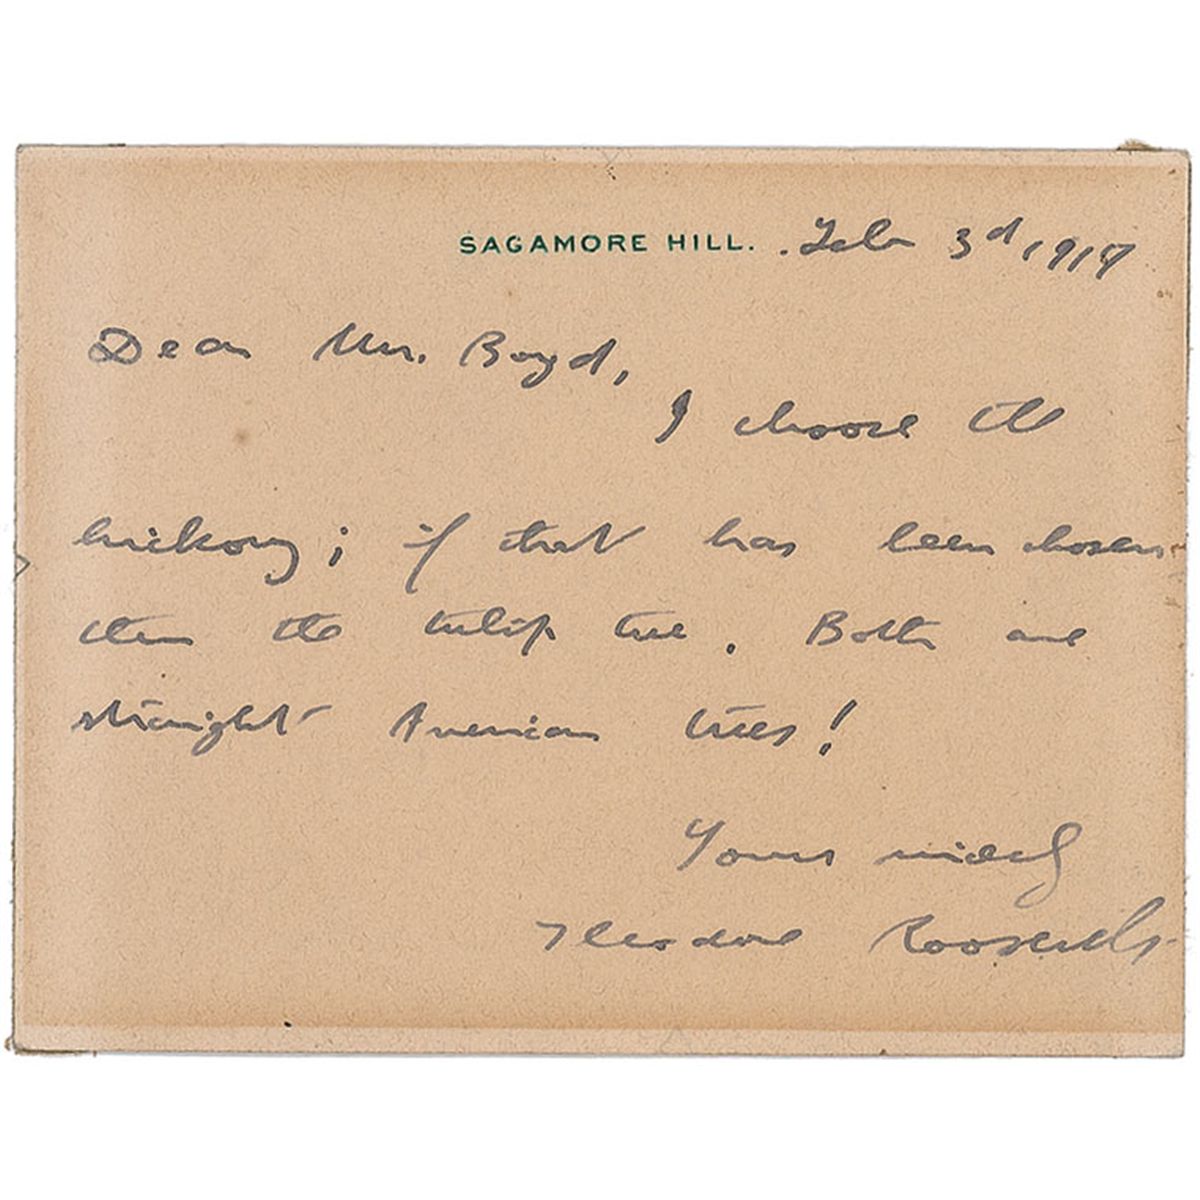 SAGAMORE HILL. Feb 3rd, 1917
Dear Mr. Boyd,
I choose the
hickory; if that has been chosen
then the tulip tree. Both are
straight American trees!
Yours truly
Theodore Roosevelt